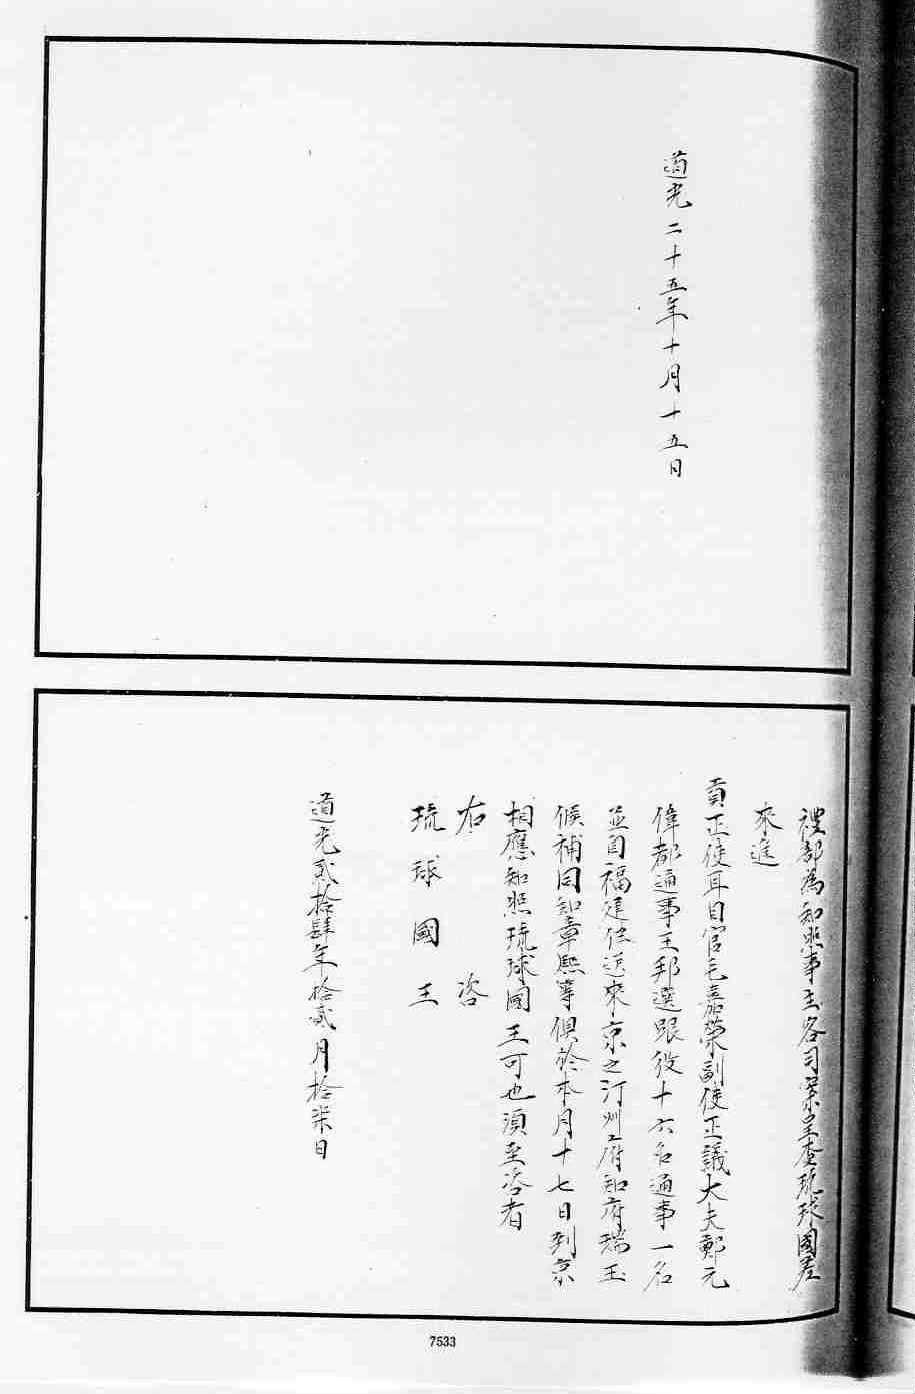 道光二十五年十月十五日
禮部為知照事主客司案呈查琉球國差
來進
貢正使耳目官毛嘉榮副使正議大夫鄭元
偉都通事王邦選跟役十六名通事一名
並自福建伴送來京之汀州府知府瑞玉
候補同知章熙等俱於本月十七日到京
相應知照琉球國王可也須至咨者
右咨
琉球國王
道光貳拾肆年拾貳月拾柒日
7533